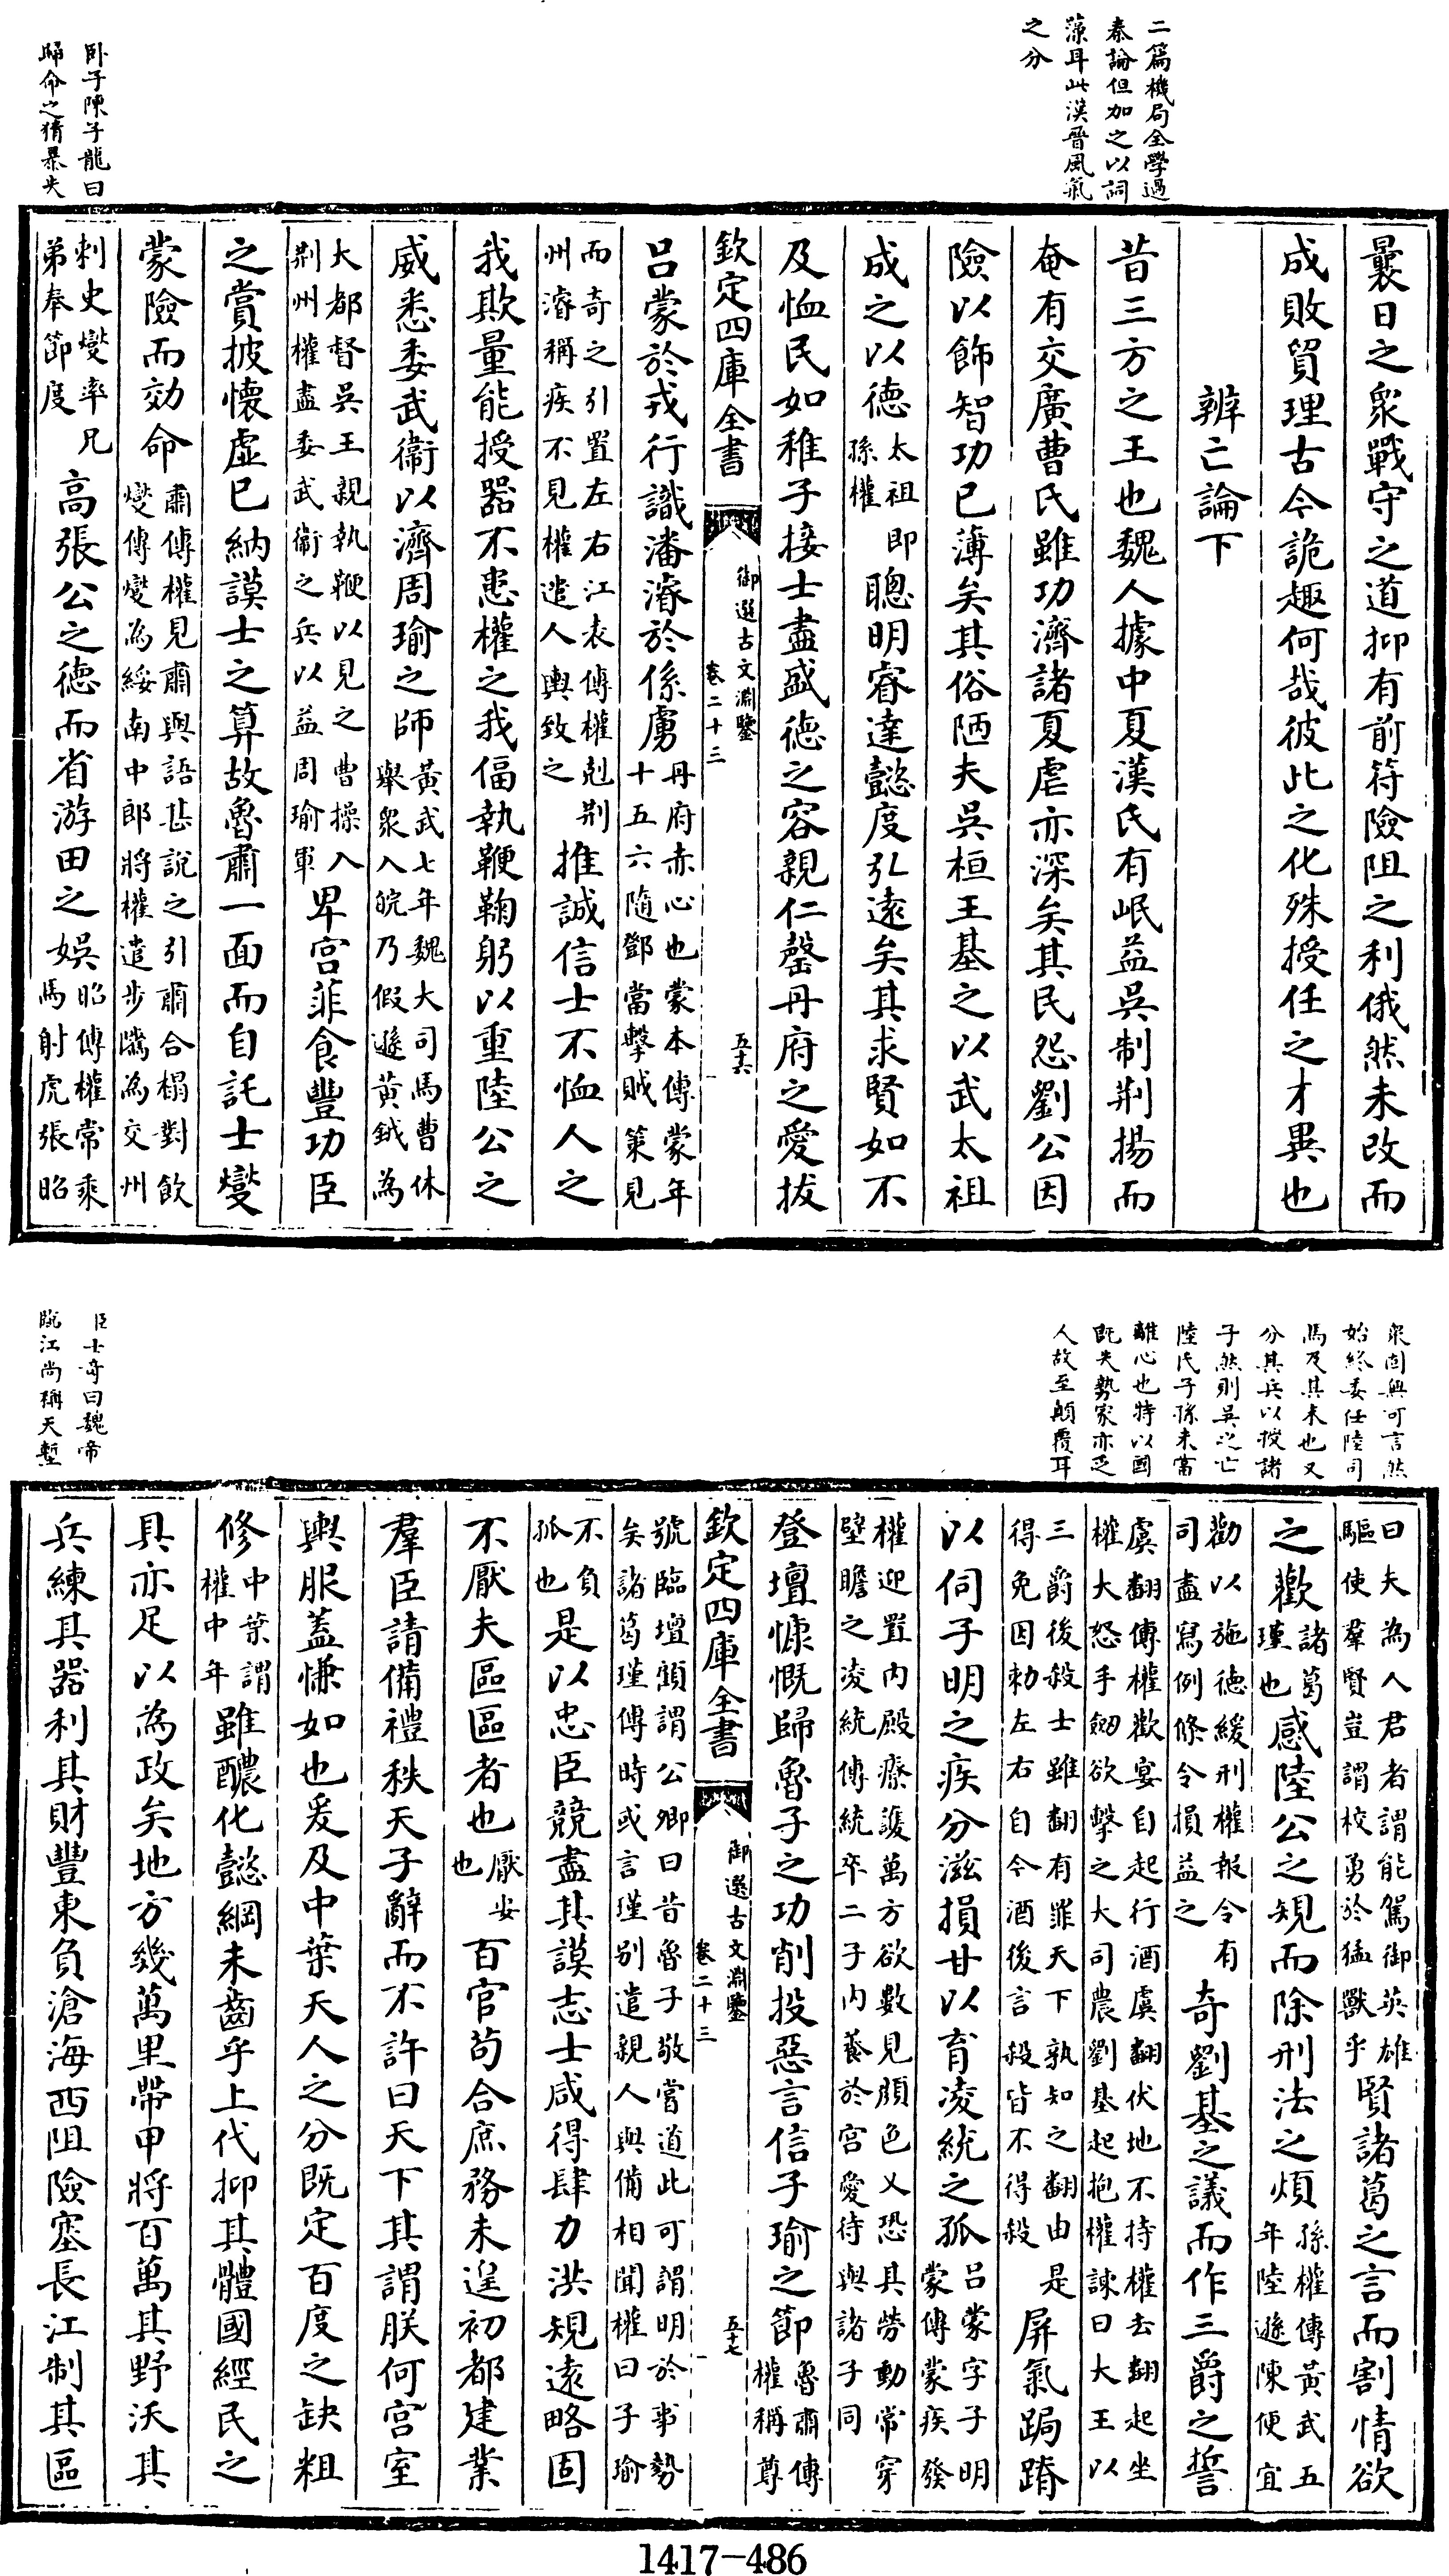 二篇機局全學過
秦論但加之以詞
藻耳此漢晉風氣
之分
曩日之衆戰守之道抑有前符險阻之利俄然未改而
成敗貿理古今詭趣何哉彼此之化殊授任之才異也
辨亡論下
昔三方之王也魏人據中夏漢氏有岷益吳制荆揚而
奄有交廣曹氏雖功濟諸夏虐亦深矣其民怨劉公因
險以飾智功已薄矣其俗陋夫吳桓王基之以武太祖
成之以德太祖即孫權聰明睿達懿度弘遠矣其求賢如不
及恤民如稚子接士盡盛德之容親仁罄丹府之愛拔
欽定四庫全書 御選古文淵鑒 卷二十三 五十六
呂蒙於戎行識潘濬於係虜丹府赤心也蒙本傳蒙年十五六隨鄧當擊賊策見
而奇之引置左右江表傳權剋荆州濬稱疾不見權遣人輿致之推誠信士不恤人之
我欺量能授器不患權之我偪執鞭鞠躬以重陸公之
威悉委武衞以濟周瑜之師黃武七年魏大司馬曹休舉衆入皖乃假遜黃鉞為
大都督吳王親執鞭以見之曹操入荆州權盡委武衞之兵以益周瑜軍卑宮菲食豐功臣
之賞披懷虛已納謨士之算故魯肅一面而自託士燮
蒙險而効命肅傳權見肅與語甚說之引肅合榻對飲燮傳燮為綏南中郎將權遣步騭為交州
刺史燮率兄弟奉節度高張公之德而省游田之娛昭傳權常乘馬射虎張昭
卧子陳子龍曰
歸命之猜暴失
衆固無可言然
始終委任陸司
馬及其末也又
分其兵以授諸
子然則吳之亡
陸氏子孫未嘗
離心也特以國
既失勢家亦乏
人故至顛覆耳
曰夫為人君者謂能駕御英雄驅使羣賢豈謂校勇於猛獸乎賢諸葛之言而割情欲
之歡諸葛瑾也感陸公之規而除刑法之煩孫權傳黃武五年陸遜陳便宜
勸以施德緩刑權報令有司盡寫例條令損益之奇劉基之議而作三爵之誓
虞翻傳權歡宴自起行酒虞翻伏地不持權去翻起坐權大怒手劒欲擊之大司農劉基起抱權諫曰大王以
三爵後殺士雖翻有罪天下孰知之翻由是得免因勅左右自今酒後言殺皆不得殺屏氣跼蹐
以伺子明之疾分滋損甘以育凌統之孤呂蒙字子明蒙傳蒙疾發
權迎置內殿療護萬方欲數見顔色乂恐其勞動常穿壁瞻之凌統傳統卒二子內養於宮愛待與諸子同
登壇慷慨歸魯子之功削投惡言信子瑜之節魯肅傳權稱尊
欽定四庫全書 御選古文淵鑒 卷二十三 五十七
號臨壇顧謂公卿曰昔魯子敬嘗道此可謂明於事勢矣諸葛瑾傳時或言瑾别遣親人與備相聞權曰子瑜
不負孤也是以忠臣競盡其謨志士咸得肆力洪規遠略固
不厭夫區區者也厭安也百官茍合庶務未遑初都建業
羣臣請備禮秩天子辭而不許曰天下其謂朕何宮室
輿服蓋慊如也爰及中葉天人之分既定百度之缺粗
修中葉謂權中年雖醲化懿綱未齒乎上代抑其體國經民之
具亦足以為政矣地方幾萬里帶甲將百萬其野沃其
兵練其器利其財豐東負滄海西阻險塞長江制其區
臣士奇曰魏帝
臨江尚稱天塹
1417-486